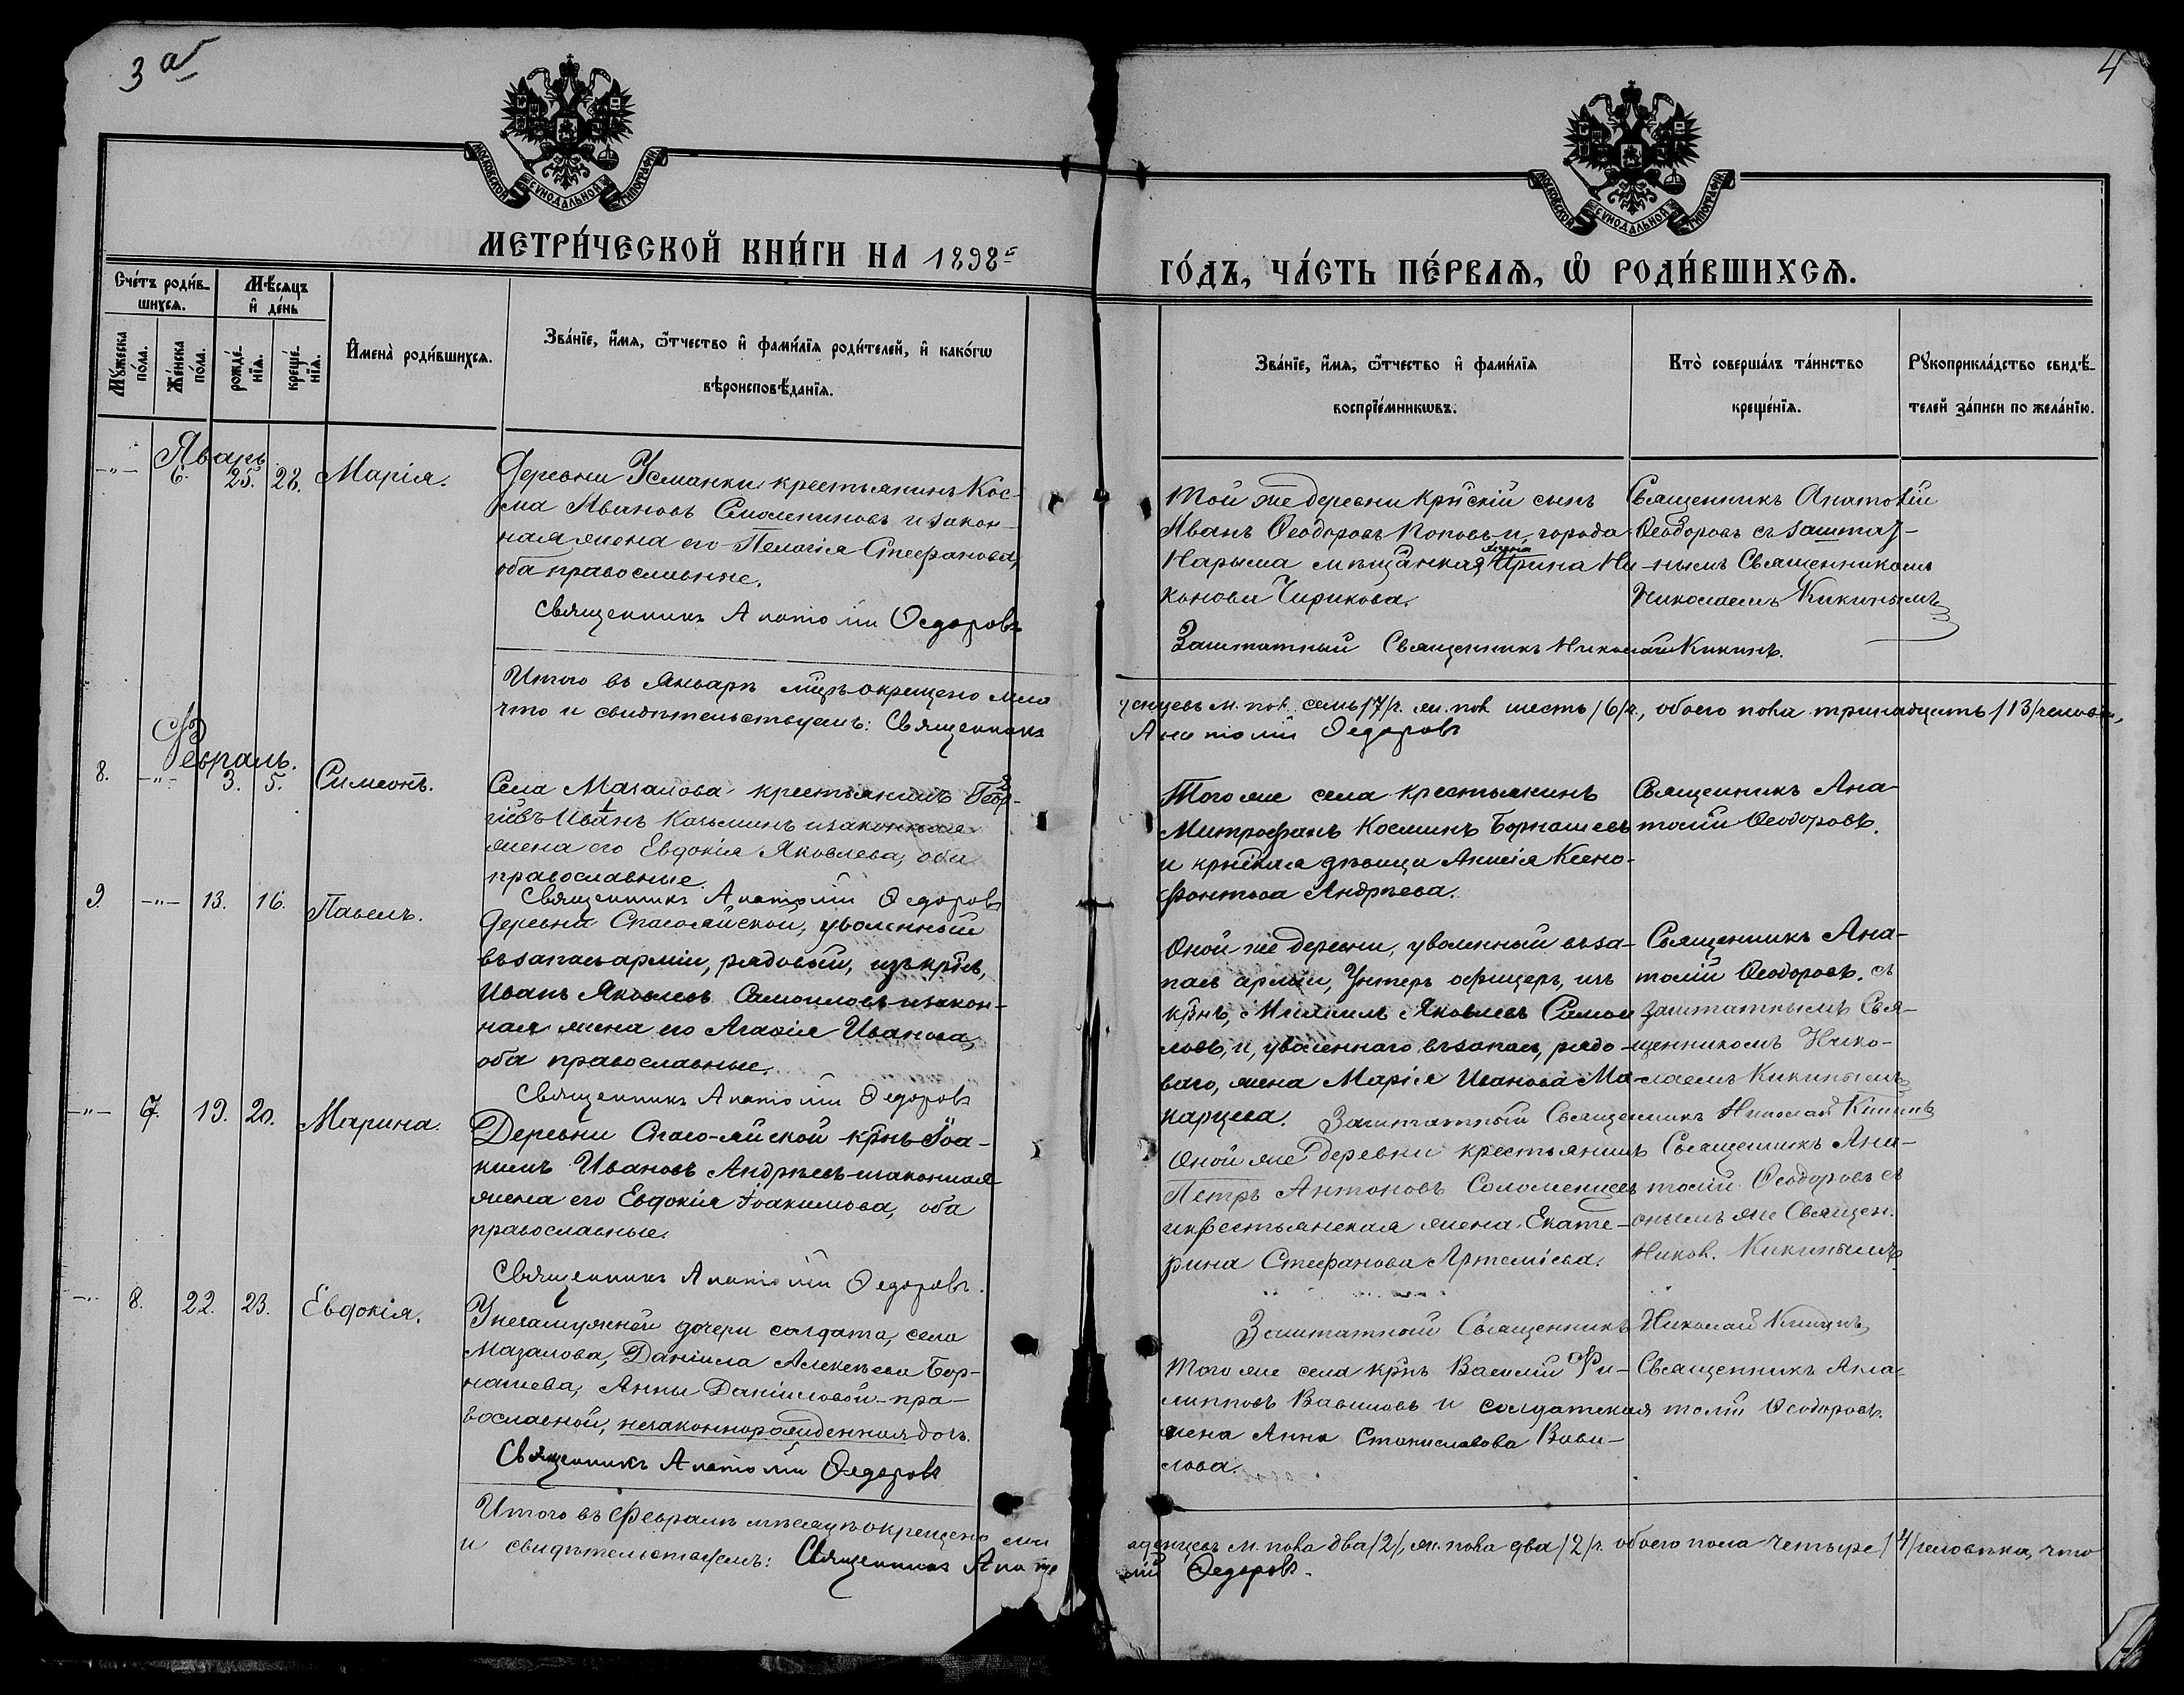 3 а
4
МОСКОВСКОЙ СѴНОДАЛЬНОЙ ТИПОГРАФІИ
МОСКОВСКОЙ СѴНОДАЛЬНОЙ ТИПОГРАФІИ
МЕТРИ́ЧЕСКОЙ КНИ́ГИ НА 1898 г̲
ГО́ДЪ, ЧА́СТЬ ПЕ́РВАѦ, Ѡ҆ РОДИ́ВШИХСѦ.
Сче́тъ роди́в-
шихсѧ.
Мѣ́сѧцъ
и҆ де́нь
Мꙋ́жеска
по́ла.
Же́нска
по́ла.
рожде́-
нїѧ.
креще́-
нїѧ.
И҆мена̀ роди́вшихсѧ.
Зва́нїе, и҆́мѧ, ѻ҆́тчество и҆ фами́лїѧ роди́телей, и҆ како́гѡ
вѣроисповѣ́данїѧ.
Зва́нїе, и҆́мѧ, ѻ҆́тчество и҆ фами́лїѧ
воспрїе́мникѡвъ.
Кто̀ соверша́лъ та́инство
креще́нїѧ.
Рꙋкоприкла́дство свидѣ́-
телей за́писи по жела́нїю.
Январь
-"- 6. 25. 28. Марія.
Деревни Усманки крестьянинъ Кос-
ма Ивановъ Смолениновъ и закон-
ная жена его Пелагія Стефанова,
оба православные.
Священникъ Анатолій Ѳедоровъ
Той же деревни крнскій сынъ
Иванъ Ѳеодоровъ Поповъ и, города
Нарыма мѣщанская жена Ирина Ни-
конова Чирикова.
Священникъ Анатолій
Ѳеодоровъ съ заштат-
нымъ Священникомъ
Николаемъ Кикинымъ
Заштатный Священникъ Николай Кикинъ.
Итого въ Январѣ мцѣ окрещено мла
денцевъ м. пол. семь /7/ч. жн. пол шесть /6/ч., обоего пола тринадцать /13/ человѣкъ,
что и свидѣтельствуемъ: Священникъ
Анатолій Ѳедоровъ
Февраль.
8. -"- 3. 5. Симеонъ.
Села Магалова крестьянинъ Геор-
гіевъ Иванъ Козьминъ и законная
жена его Евдокія Яковлева, оба
православные.
Священникъ Анатолій Ѳедоровъ
Того же села крестьянинъ
Митрофанъ Косминъ Борнашевъ
и крнская дѣвица Анисія Ксено-
фонтова Андрѣева.
Священникъ Ана-
толій Ѳеодоровъ.
9. -"- 13. 16. Павелъ.
Деревни Спасо-яйской, уволенный
въ запасъ арміи, рядовый, изъ крнъ,
Иванъ Яковлевъ Самойловъ и закон-
ная жена его Агафія Иванова,
оба православные.
Священникъ Анатолій Ѳедоровъ
Оной же деревни, уволенный въ за-
пасъ арміи, Унтеръ офицеръ, изъ
крнъ, Михаилъ Яковлевъ Самои
ловъ, и, уволеннаго въ запасъ, рядо-
ваго, жена Марія Иванова Ма-
карцева.
Священникъ Ана-
толій Ѳеодоровъ, съ
заштатнымъ Свя-
щенникомъ Нико-
лаемъ Кикинымъ
Заштатный Священникъ Николай Кикинъ
-"- 7. 19. 20. Марина.
Деревни Спасо-яйской крнъ Іоа-
кимъ Ивановъ Андрѣевъ и законная
жена его Евдокія Іоакимова, оба
православные.
Священникъ Анатолій Ѳедоровъ.
Оной же деревни крестьянинъ
Петръ Антоновъ Соломенцевъ
и крестьянская жена Екате-
рина Стефанова Артеміева.
Священникъ Ана-
толій Ѳеодоровъ съ
онымъ же Священ.
Никол. Кикинымъ
Заштатный Священникъ Николай Кикинъ
-"- 8. 22. 23. Евдокія.
У незамужней дочери солдата, села
Мазалова, Даніила Алексѣева Бор-
нашева, Анны Даніиловой - пра-
вославной, незаконнорожденная дочь.
Священникъ Анатолій Ѳедоровъ
Того же села крнъ Василій Фи-
липповъ Вавиловъ и солдатская
жена Анна Станиславова Вави-
лова.
Священникъ Ана-
толій Ѳеодоровъ.
Итого въ Февралѣ мѣсяцѣ окрещено мла
аденцевъ м. пола два /2/, жн. пола два /2/ч. обоего пола четыре /4/ человѣка, что
и свидѣтельствуемъ: Священникъ Анато
лій Ѳедоровъ.